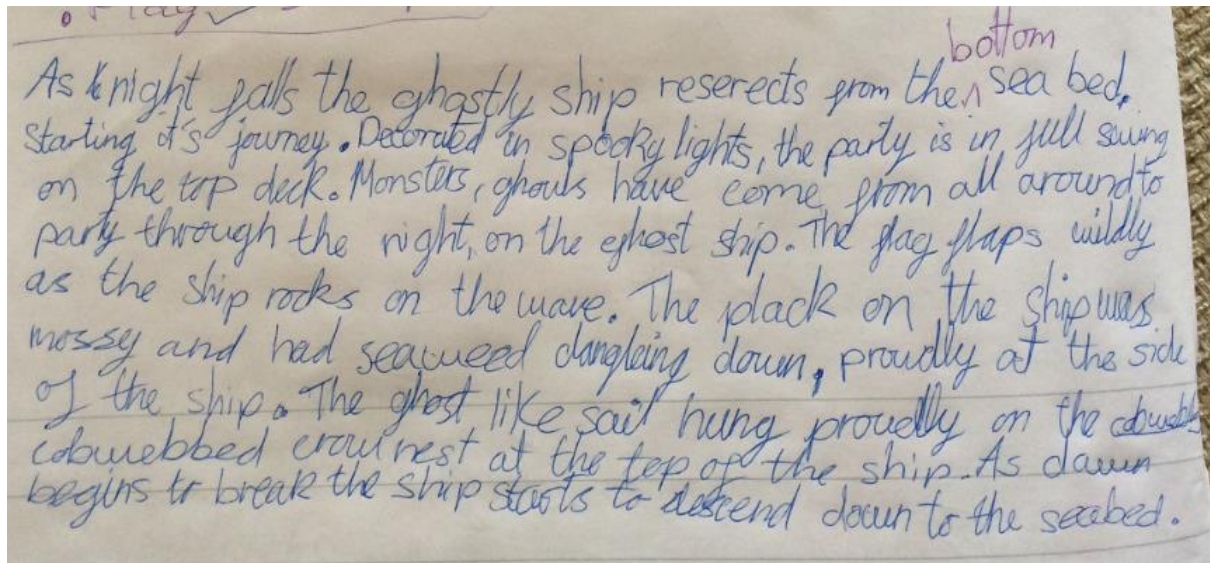 . Play
bottom
As night falls the ghostly ship reserects from the sea bed.
Starting it's journey. Decorated in spooky lights, the party is in full swing
on the top deck. Monsters, ghouls have come from all around to
party through the night, on the ghost ship. The flag flaps wildly
as the ship rocks on the wave. The plack on the ship was
mossy and had seaweed dangleing down, proudly at the side
of the ship. The ghost like sail hung proudly on the
cobwebbed crow nest at the top of the ship. As dawn
begins to break the ship starts to descend down to the seabed.